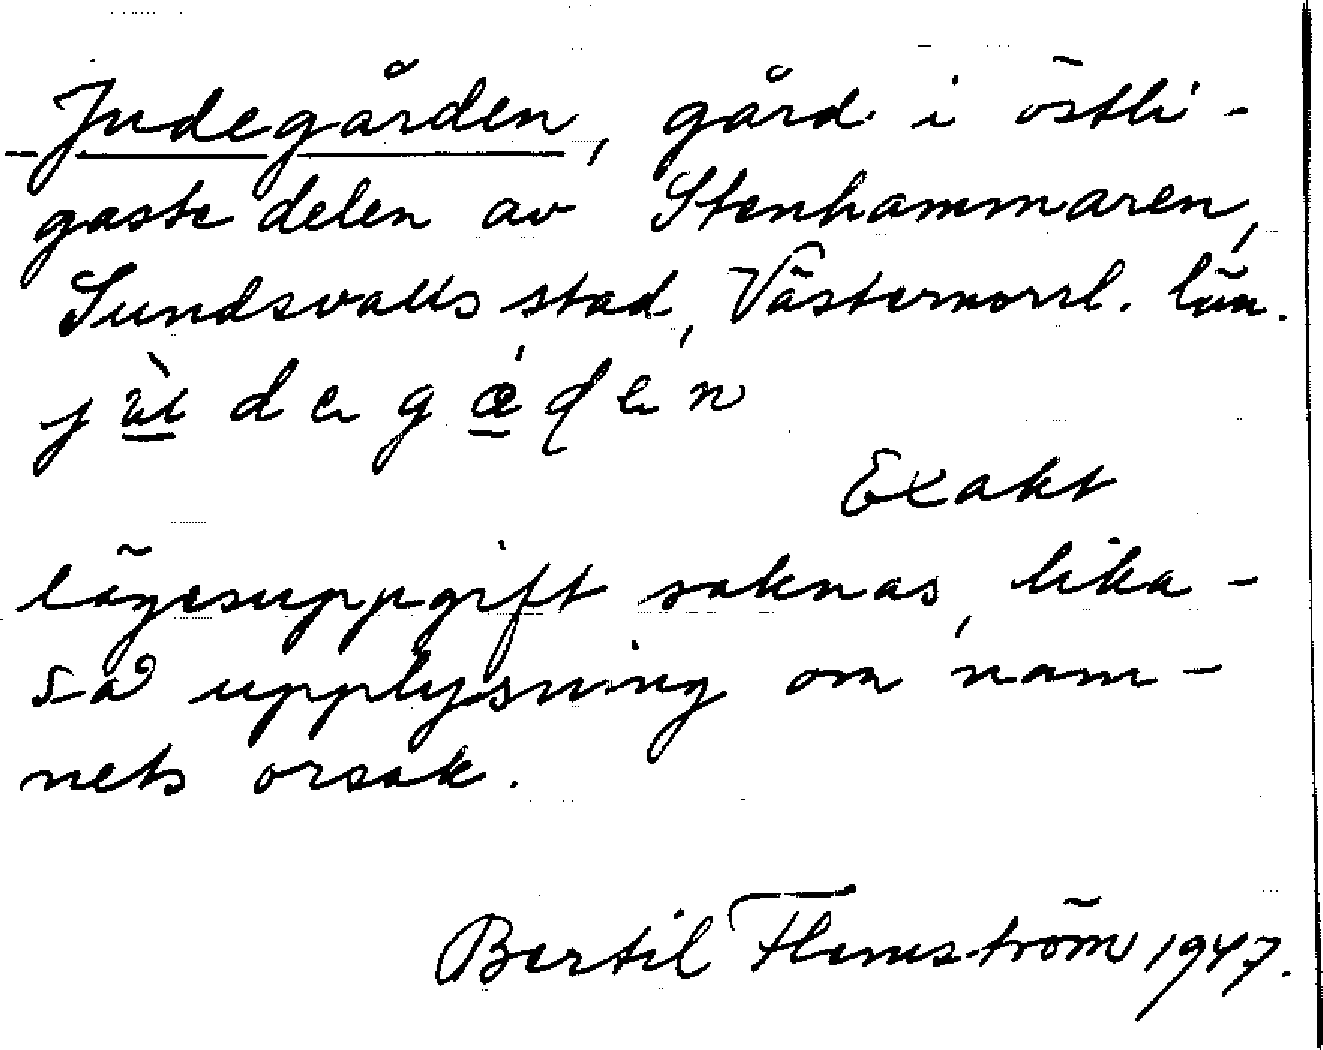 Judegården, gård i östli-
gaste delen av Stenhammaren,
Sundsvalls stad, Västernorrl. län.
Exakt
lägesuppgift saknas, lika-
så upplysning om nam-
nets orsak.
Bertil Flemström 1947.